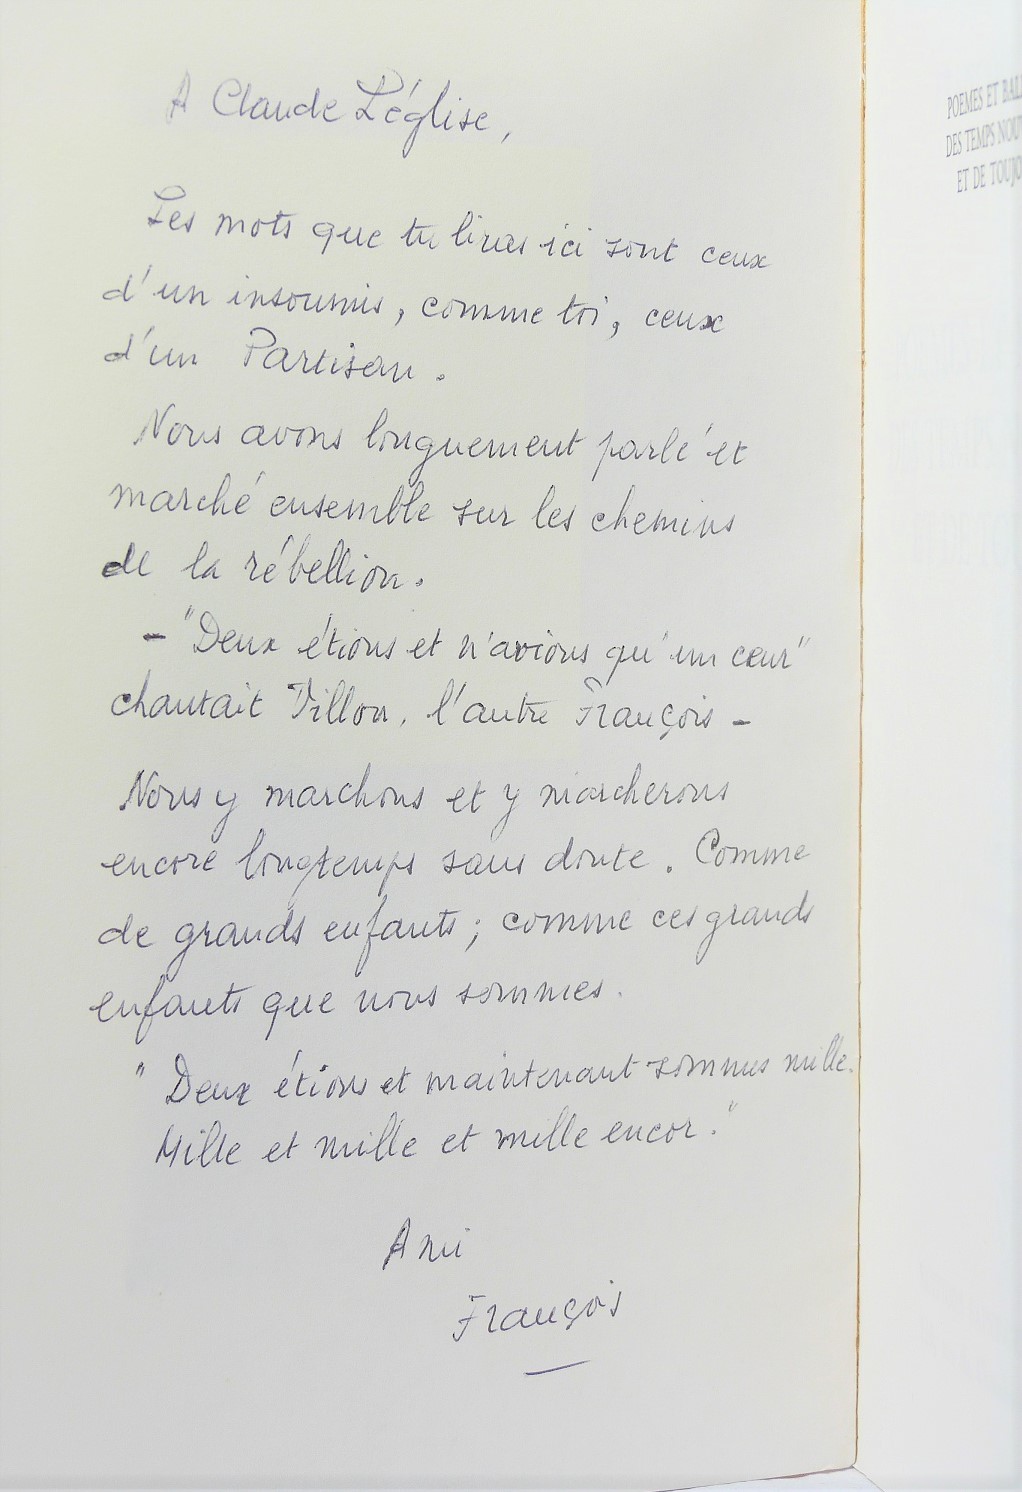 A Claude Léglise,
Les mots que tu liras ici sont ceux
d'un insoumis, comme toi, ceux
d'un Partisan.
Nous avons longuement parlé et
marché ensemble sur les chemins
de la rébellion.
- "Deux étions et n'avions qu'un cœur"
chantait Villon, l'autre François -
Nous y marchons et y marcherons
encore longtemps sans doute. Comme
de grands enfants ; comme ces grands
enfants que nous sommes.
" Deux étions et maintenant sommes mille.
Mille et mille et mille encor."
Ami
François
POEMES ET
DES TEMPS
ET DE